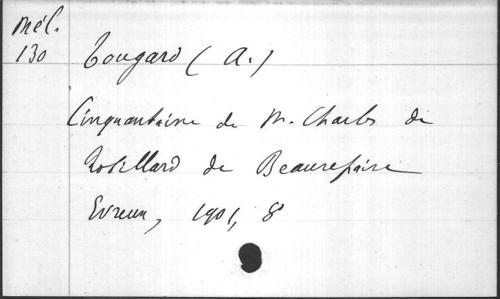 Mél.
130
Tougard (A.)
Cinquantaine de M. Charles de
Robillard de Beaurepaire
Evreux, 1901, 8°